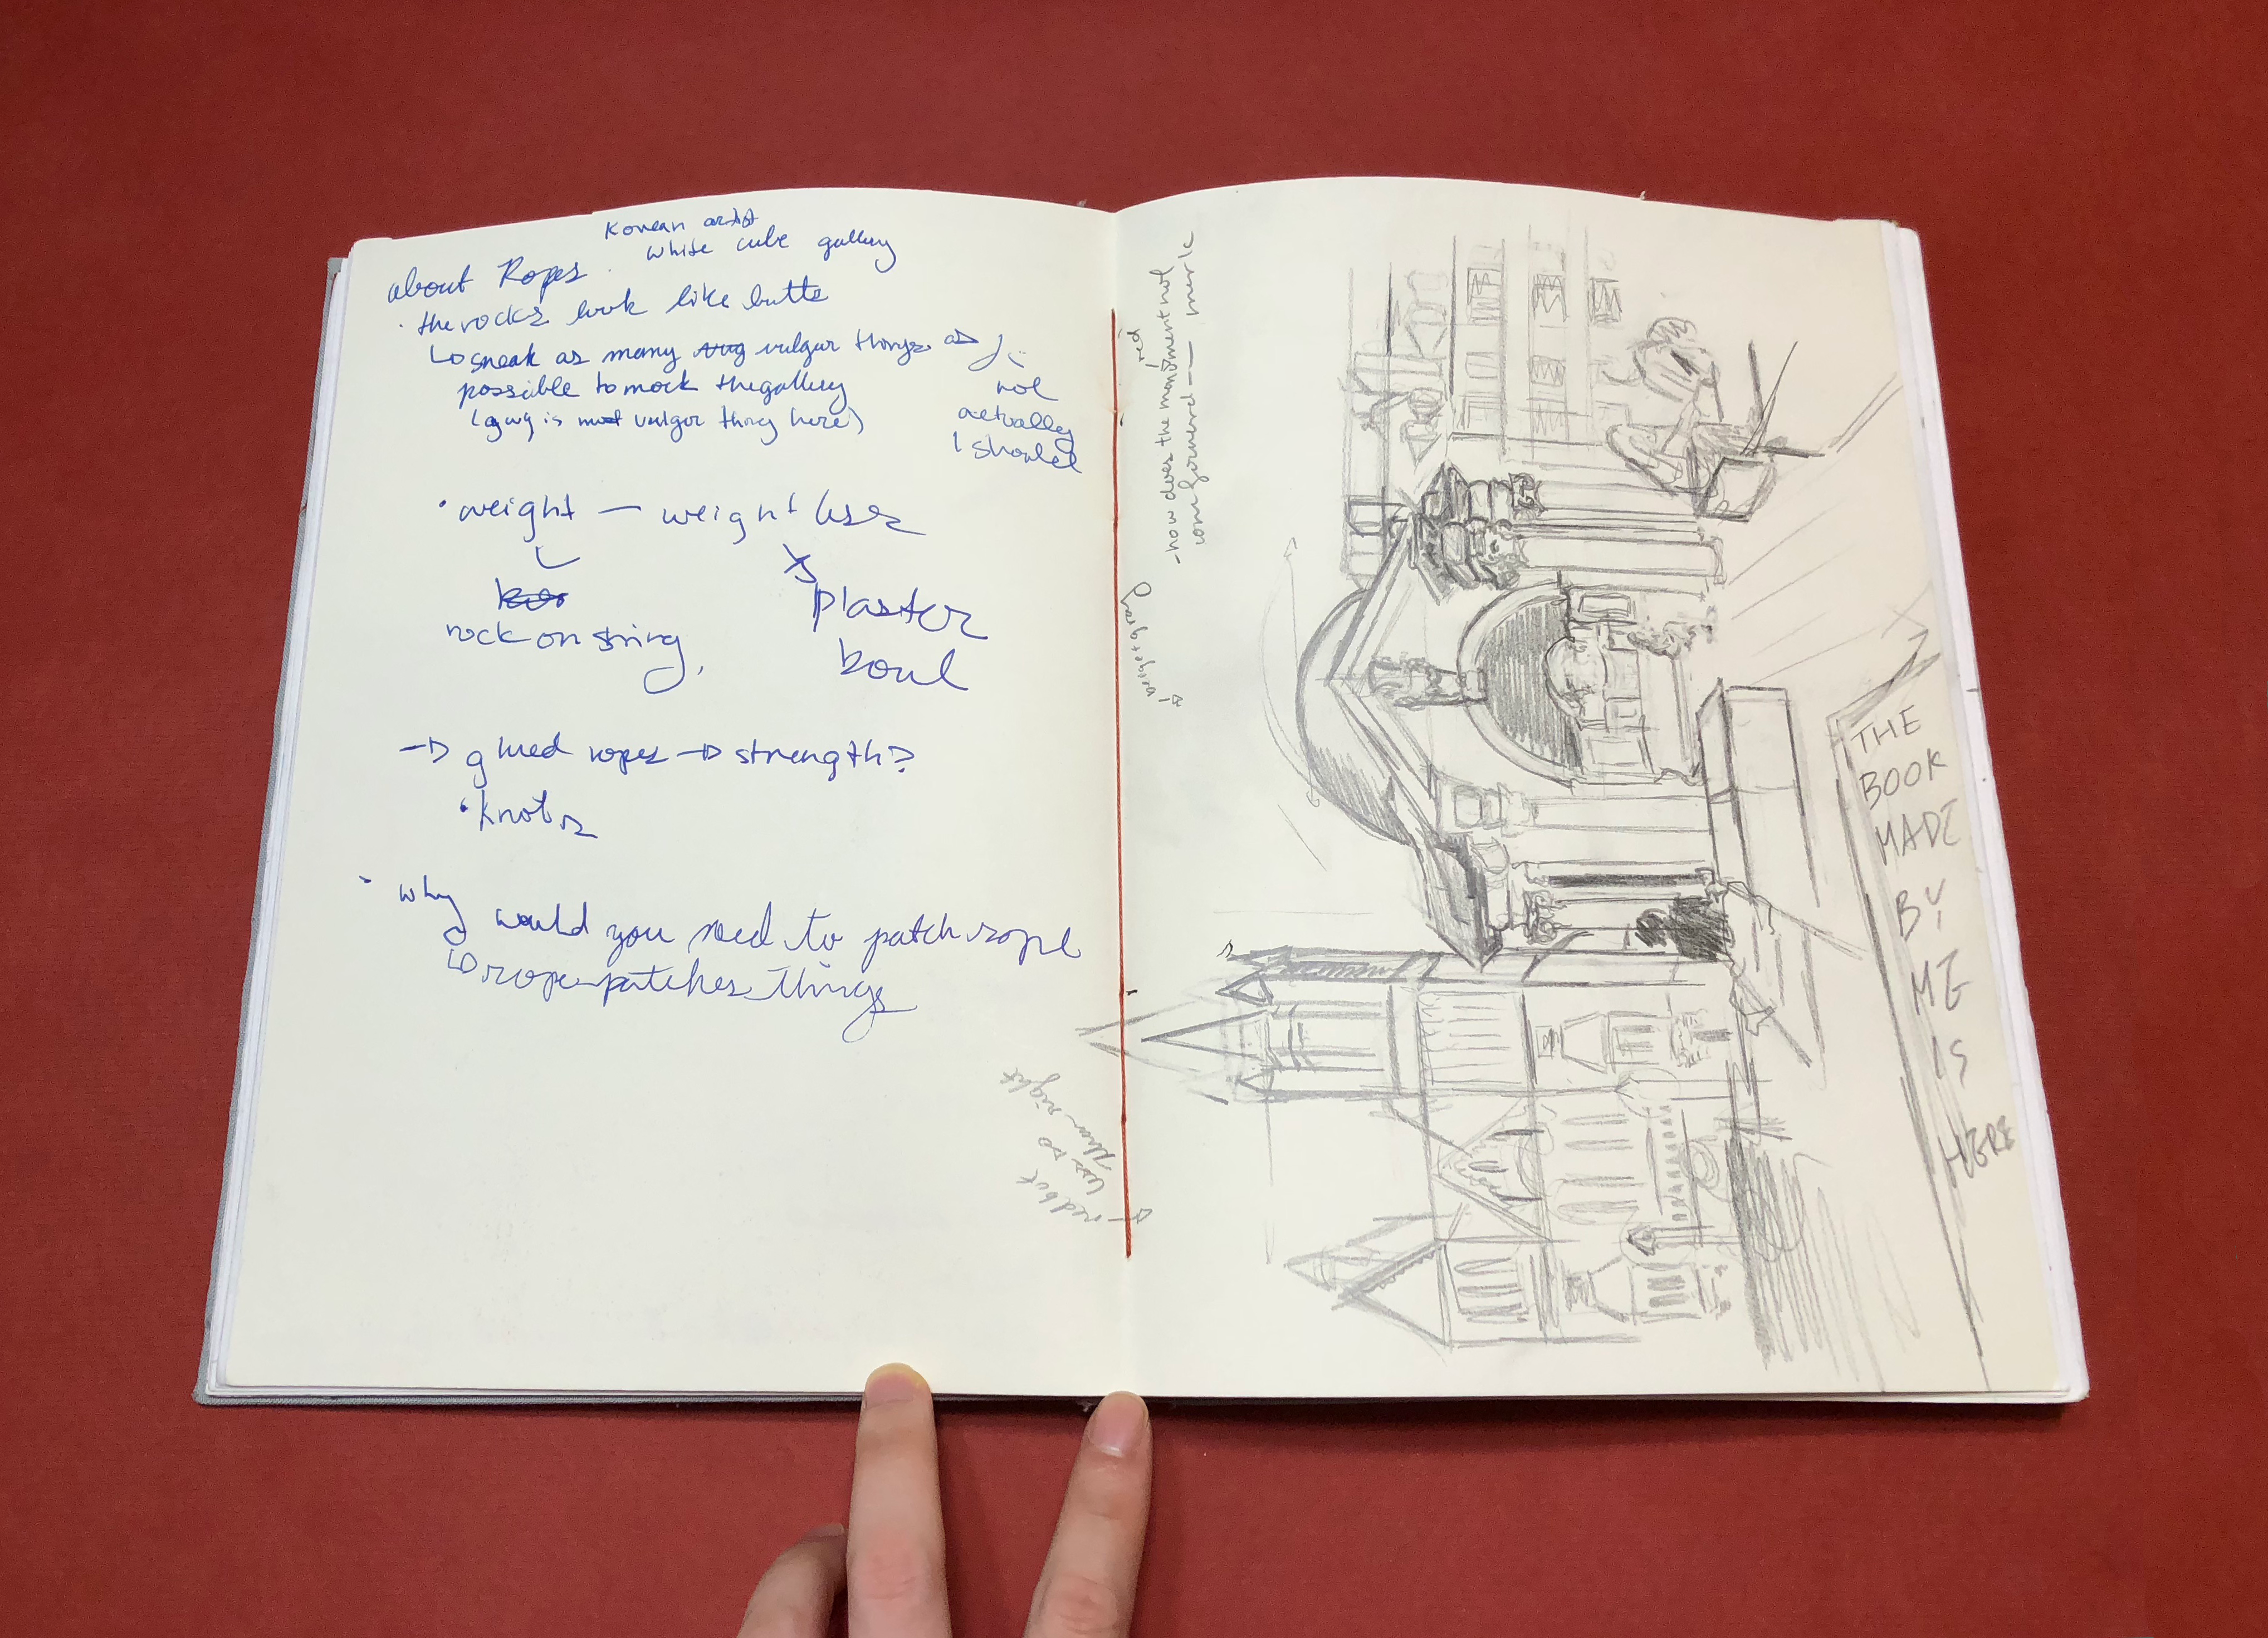 Korean artist
white cube gallery
about Ropes
· the rocks look like butts
sneak as many vulgar things as
possible to mock the gallery
(guy is most vulgar thing here)
not
actually
I should
· weight — weight less
rock on string,
plaster
bowl
→ glued ropes → strength?
· knots
· why would you need to patch rope
rope patches things
red but
right
- how does the monument not
red
merle
THE
BOOK
MADE
BY
ME
IS
HERE